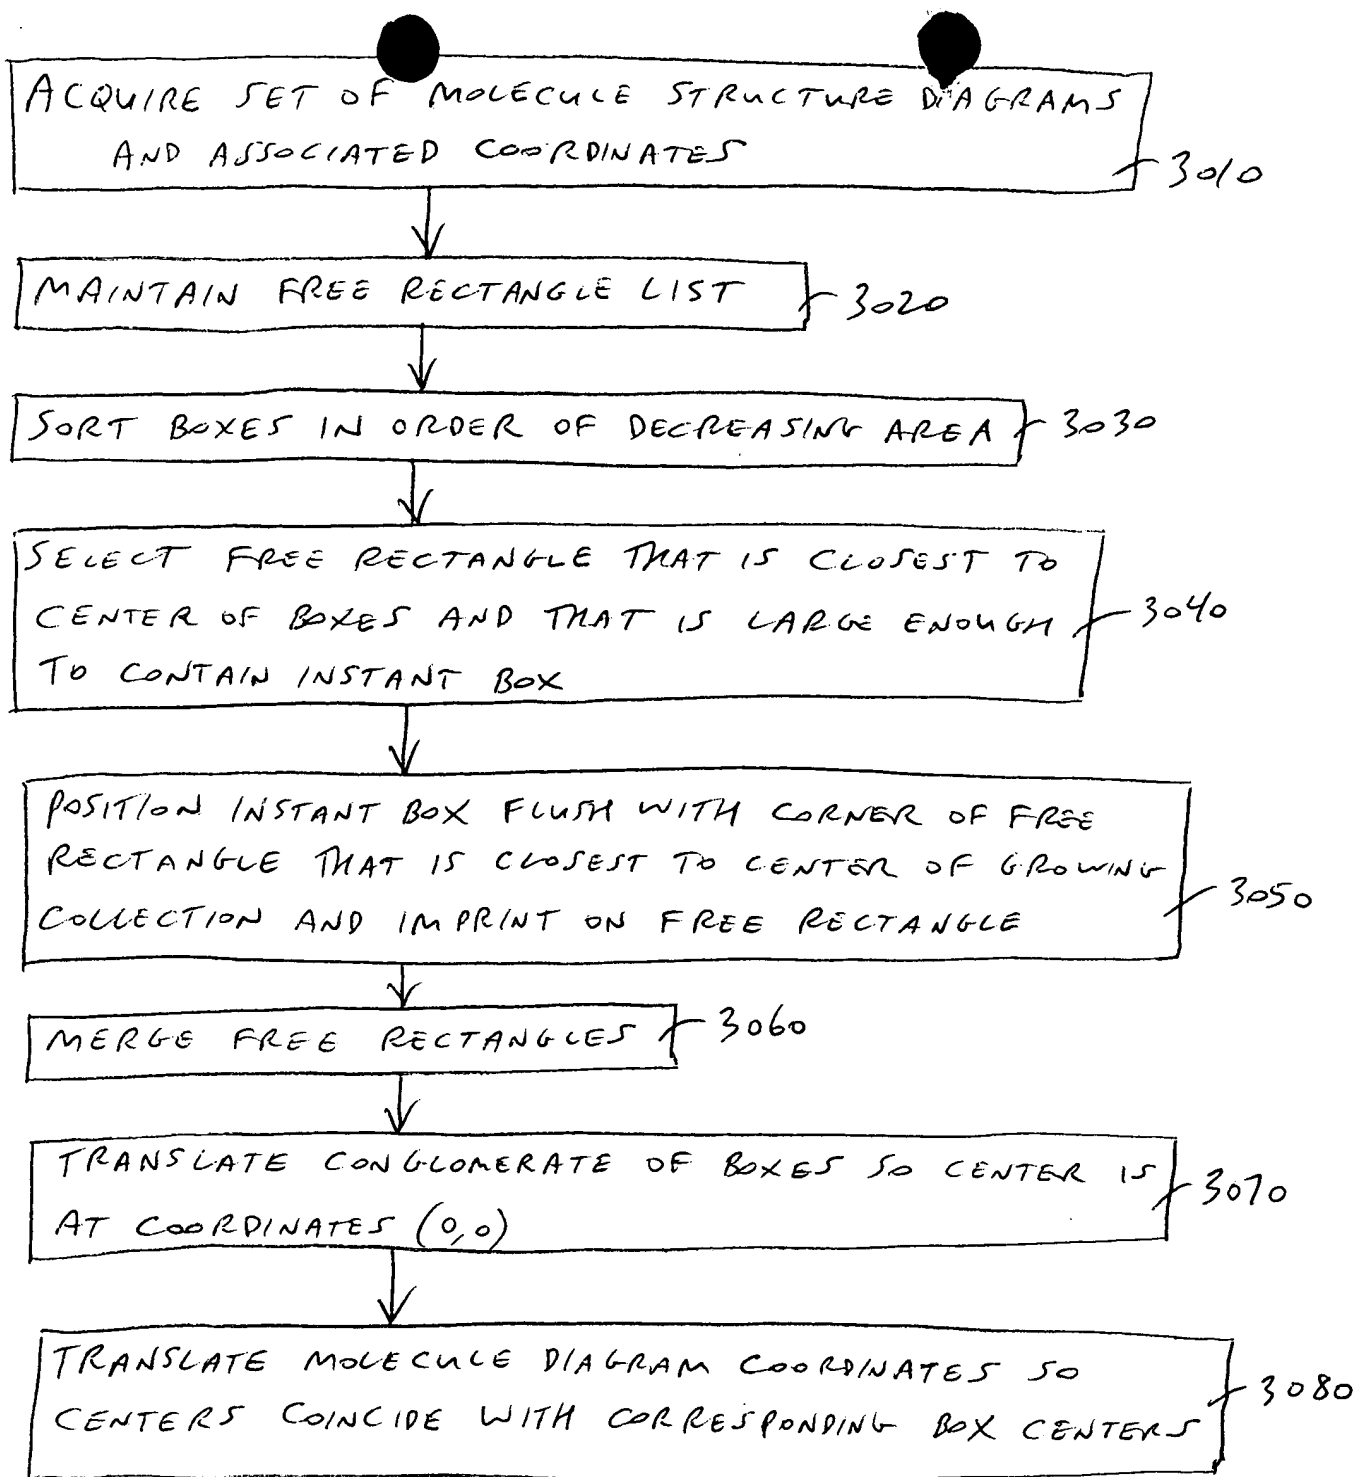 ACQUIRE SET OF MOLECULE STRUCTURE DIAGRAMS
AND ASSOCIATED COORDINATES
3010
MAINTAIN FREE RECTANGLE LIST
3020
SORT BOXES IN ORDER OF DECREASING AREA
3030
SELECT FREE RECTANGLE THAT IS CLOSEST TO
CENTER OF BOXES AND THAT IS LARGE ENOUGH
TO CONTAIN INSTANT BOX
3040
POSITION INSTANT BOX FLUSH WITH CORNER OF FREE
RECTANGLE THAT IS CLOSEST TO CENTER OF GROWING
COLLECTION AND IMPRINT ON FREE RECTANGLE
3050
MERGE FREE RECTANGLES
3060
TRANSLATE CONGLOMERATE OF BOXES SO CENTER IS
AT COORDINATES (0,0)
3070
TRANSLATE MOLECULE DIAGRAM COORDINATES SO
CENTERS COINCIDE WITH CORRESPONDING BOX CENTERS
3080